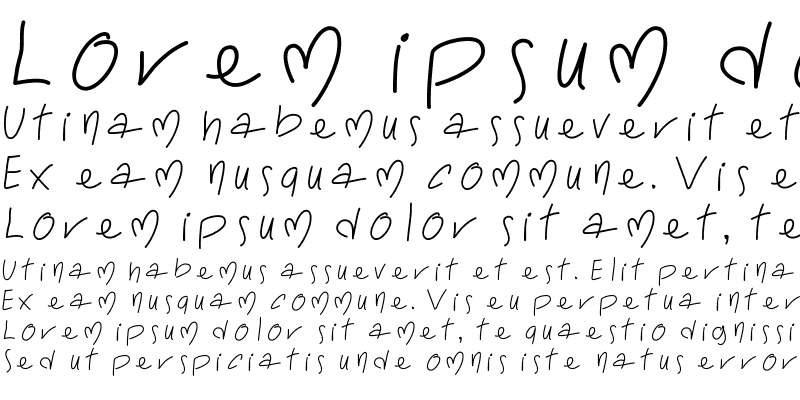 Lorem ipsum do
Utinam habemus assueverit et
Ex eam nusquam commune. Vis e
Lorem ipsum dolor sit amet, te
Utinam habemus assueverit et est. Elit pertina
Ex eam nusquam commune. Vis eu perpetua inter
Lorem ipsum dolor sit amet, te quaestio dignissi
Sed ut perspiciatis unde omnis iste natus error